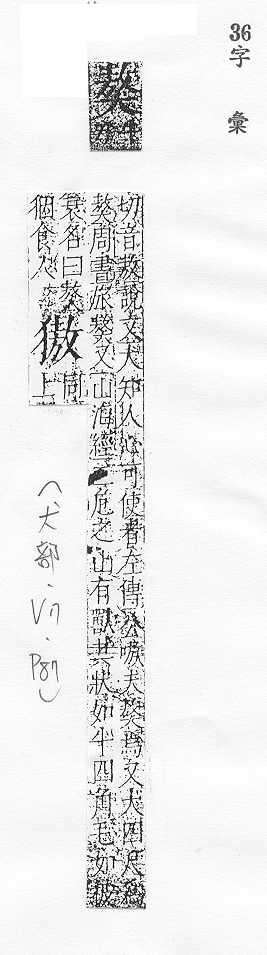 36
字彙
獒牛刀
切音敖說文犬知人心可使者左傳公嗾夫獒焉又犬四尺爲
獒周書旅獒又山海經三危之山有獸其狀如牛四角毛如披
蓑名曰獒
個食人
獓
同上
(犬部.V7.P87)